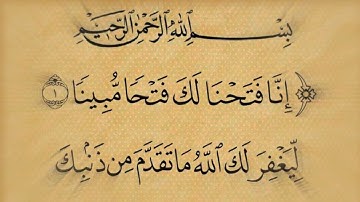 بِسْمِ اللَّهِ الرَّحْمَٰنِ الرَّحِيمِ
إِنَّا فَتَحْنَا لَكَ فَتْحًا مُّبِينًا ١
لِّيَغْفِرَ لَكَ اللَّهُ مَا تَقَدَّمَ مِن ذَنبِكَ